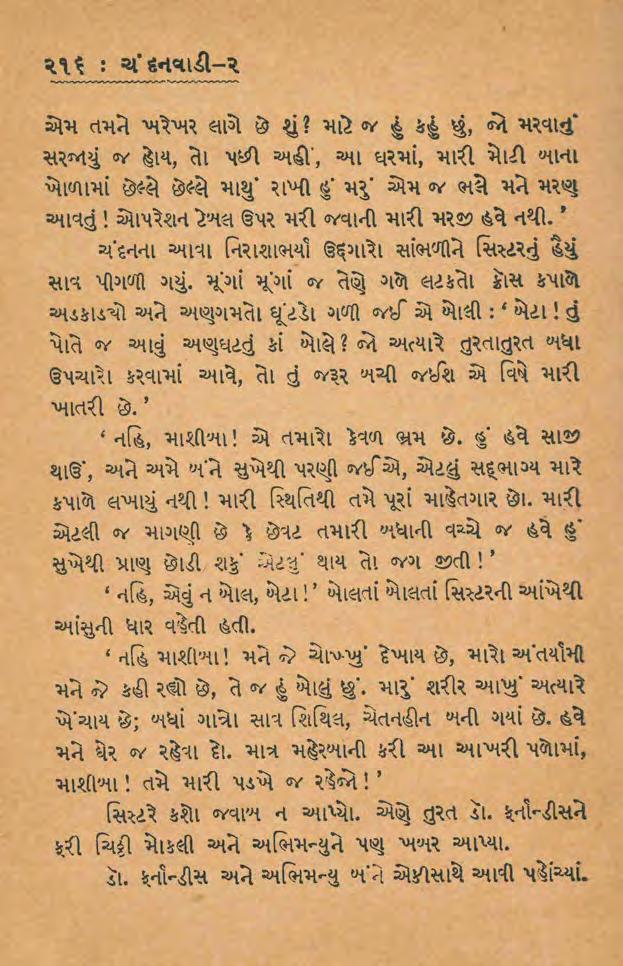 ૨૧૬ : ચંદનવાડી–૨
એમ તમને ખરેખર લાગે છે શું? માટે જ હું કહું છું, જો મરવાનું
સરજાયું જ હોય, તો પછી અહીં, આ ઘરમાં, મારી મોટી બાના
ખોળામાં છેલ્લે છેલ્લે માથું રાખી હું મરું એમ જ ભલે મને મરણ
આવતું! ઓપરેશન ટેબલ ઉપર મરી જવાની મારી મરજી હવે નથી.’
ચંદનના આવા નિરાશાભર્યા ઉદ્ગારો સાંભળીને સિસ્ટરનું હૈયું
સાવ પીગળી ગયું. મૂંગાં મૂંગાં જ તેણે ગળે લટકતો ક્રોસ કપાળે
અડકાડ્યો અને અણગમતો ઘૂંટડો ગળી જઈ એ બોલી : ‘ બેટા! તું
પોતે જ આવું અણઘટતું કાં બોલે? જો અત્યારે તુરતાતુરત બધા
ઉપચારો કરવામાં આવે, તો તું જરૂર બચી જઈશ એ વિષે મારી
ખાતરી છે.’
‘ નહિ, માશીબા! એ તમારો કેવળ ભ્રમ છે. હું હવે સાજી
થાઉં, અને અમે બંને સુખેથી પરણી જઈએ, એટલું સદ્ભાગ્ય મારે
કપાળે લખાયું નથી! મારી સ્થિતિથી તમે પૂરાં માહેતગાર છો. મારી
એટલી જ માગણી છે કે છેવટ તમારી બધાની વચ્ચે જ હવે હું
સુખેથી પ્રાણ છોડી શકું એટલું થાય તો જગ જીતી!’
‘ નહિ, એવું ન બોલ, બેટા!’ બોલતાં બોલતાં સિસ્ટરની આંખેથી
આંસુની ધાર વહેતી હતી.
‘ નહિ માશીબા! મને જે ચોખ્ખું દેખાય છે, મારો અંતર્યામી
મને જે કહી રહ્યો છે, તે જ હું બોલું છું. મારું શરીર આખું અત્યારે
ખેંચાય છે; બધાં ગાત્રો સાવ શિથિલ, ચેતનહીન બની ગયાં છે. હવે
મને ઘેર જ રહેવા દો. માત્ર મહેરબાની કરી આ આખરી પળોમાં,
માશીબા! તમે મારી પડખે જ રહેજો!’
સિસ્ટરે કશો જવાબ ન આપ્યો. એણે તુરત ડૉ. ફર્નાન્ડીસને
ફરી ચિઠ્ઠી મોકલી અને અભિમન્યુને પણ ખબર આપ્યા.
ડૉ. ફર્નાન્ડીસ અને અભિમન્યુ બંને એકીસાથે આવી પહોંચ્યાં.